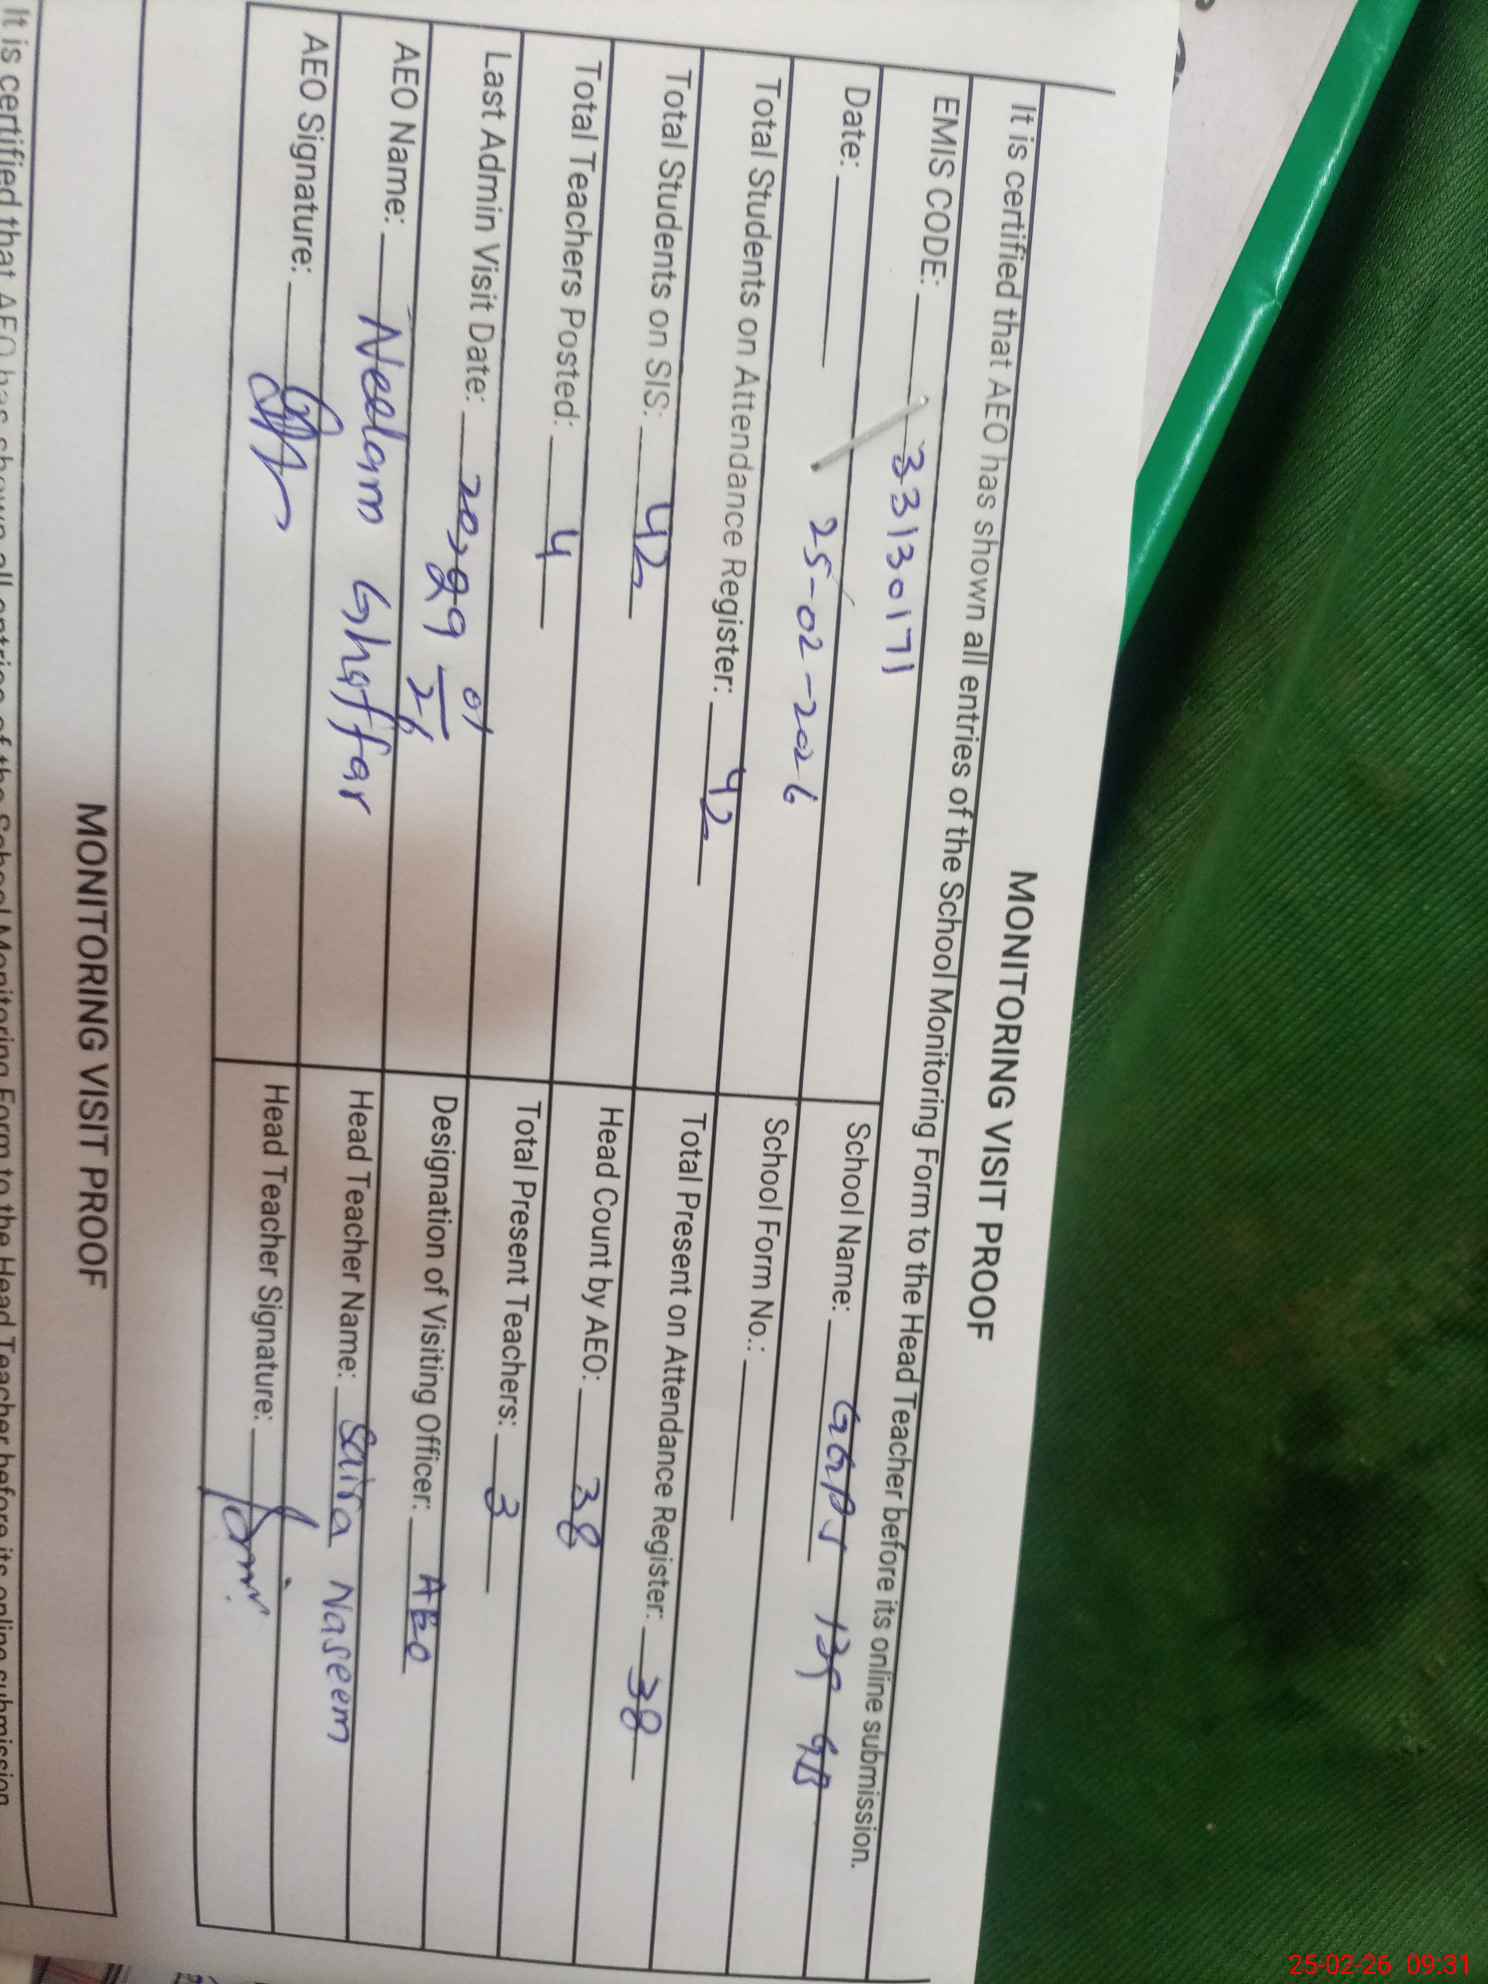 MONITORING VISIT PROOF
It is certified that AEO has shown all entries of the School Monitoring Form to the Head Teacher before its online submission.
EMIS CODE: 33130171 School Name: GGPS 139 GB
Date: 25-02-2026 School Form No.:
Total Students on Attendance Register: 42 Total Present on Attendance Register: 38
Total Students on SIS: 42 Head Count by AEO: 38
Total Teachers Posted: 4 Total Present Teachers: 3
Last Admin Visit Date: 29 01 26 Designation of Visiting Officer: AEO
AEO Name: Neelam Ghaffar Head Teacher Name: Saira Naseem
AEO Signature: Head Teacher Signature:
MONITORING VISIT PROOF
It is certified that AEO has shown all entries of the School Monitoring Form to the Head Teacher before its online submission
25-02-26 09:31